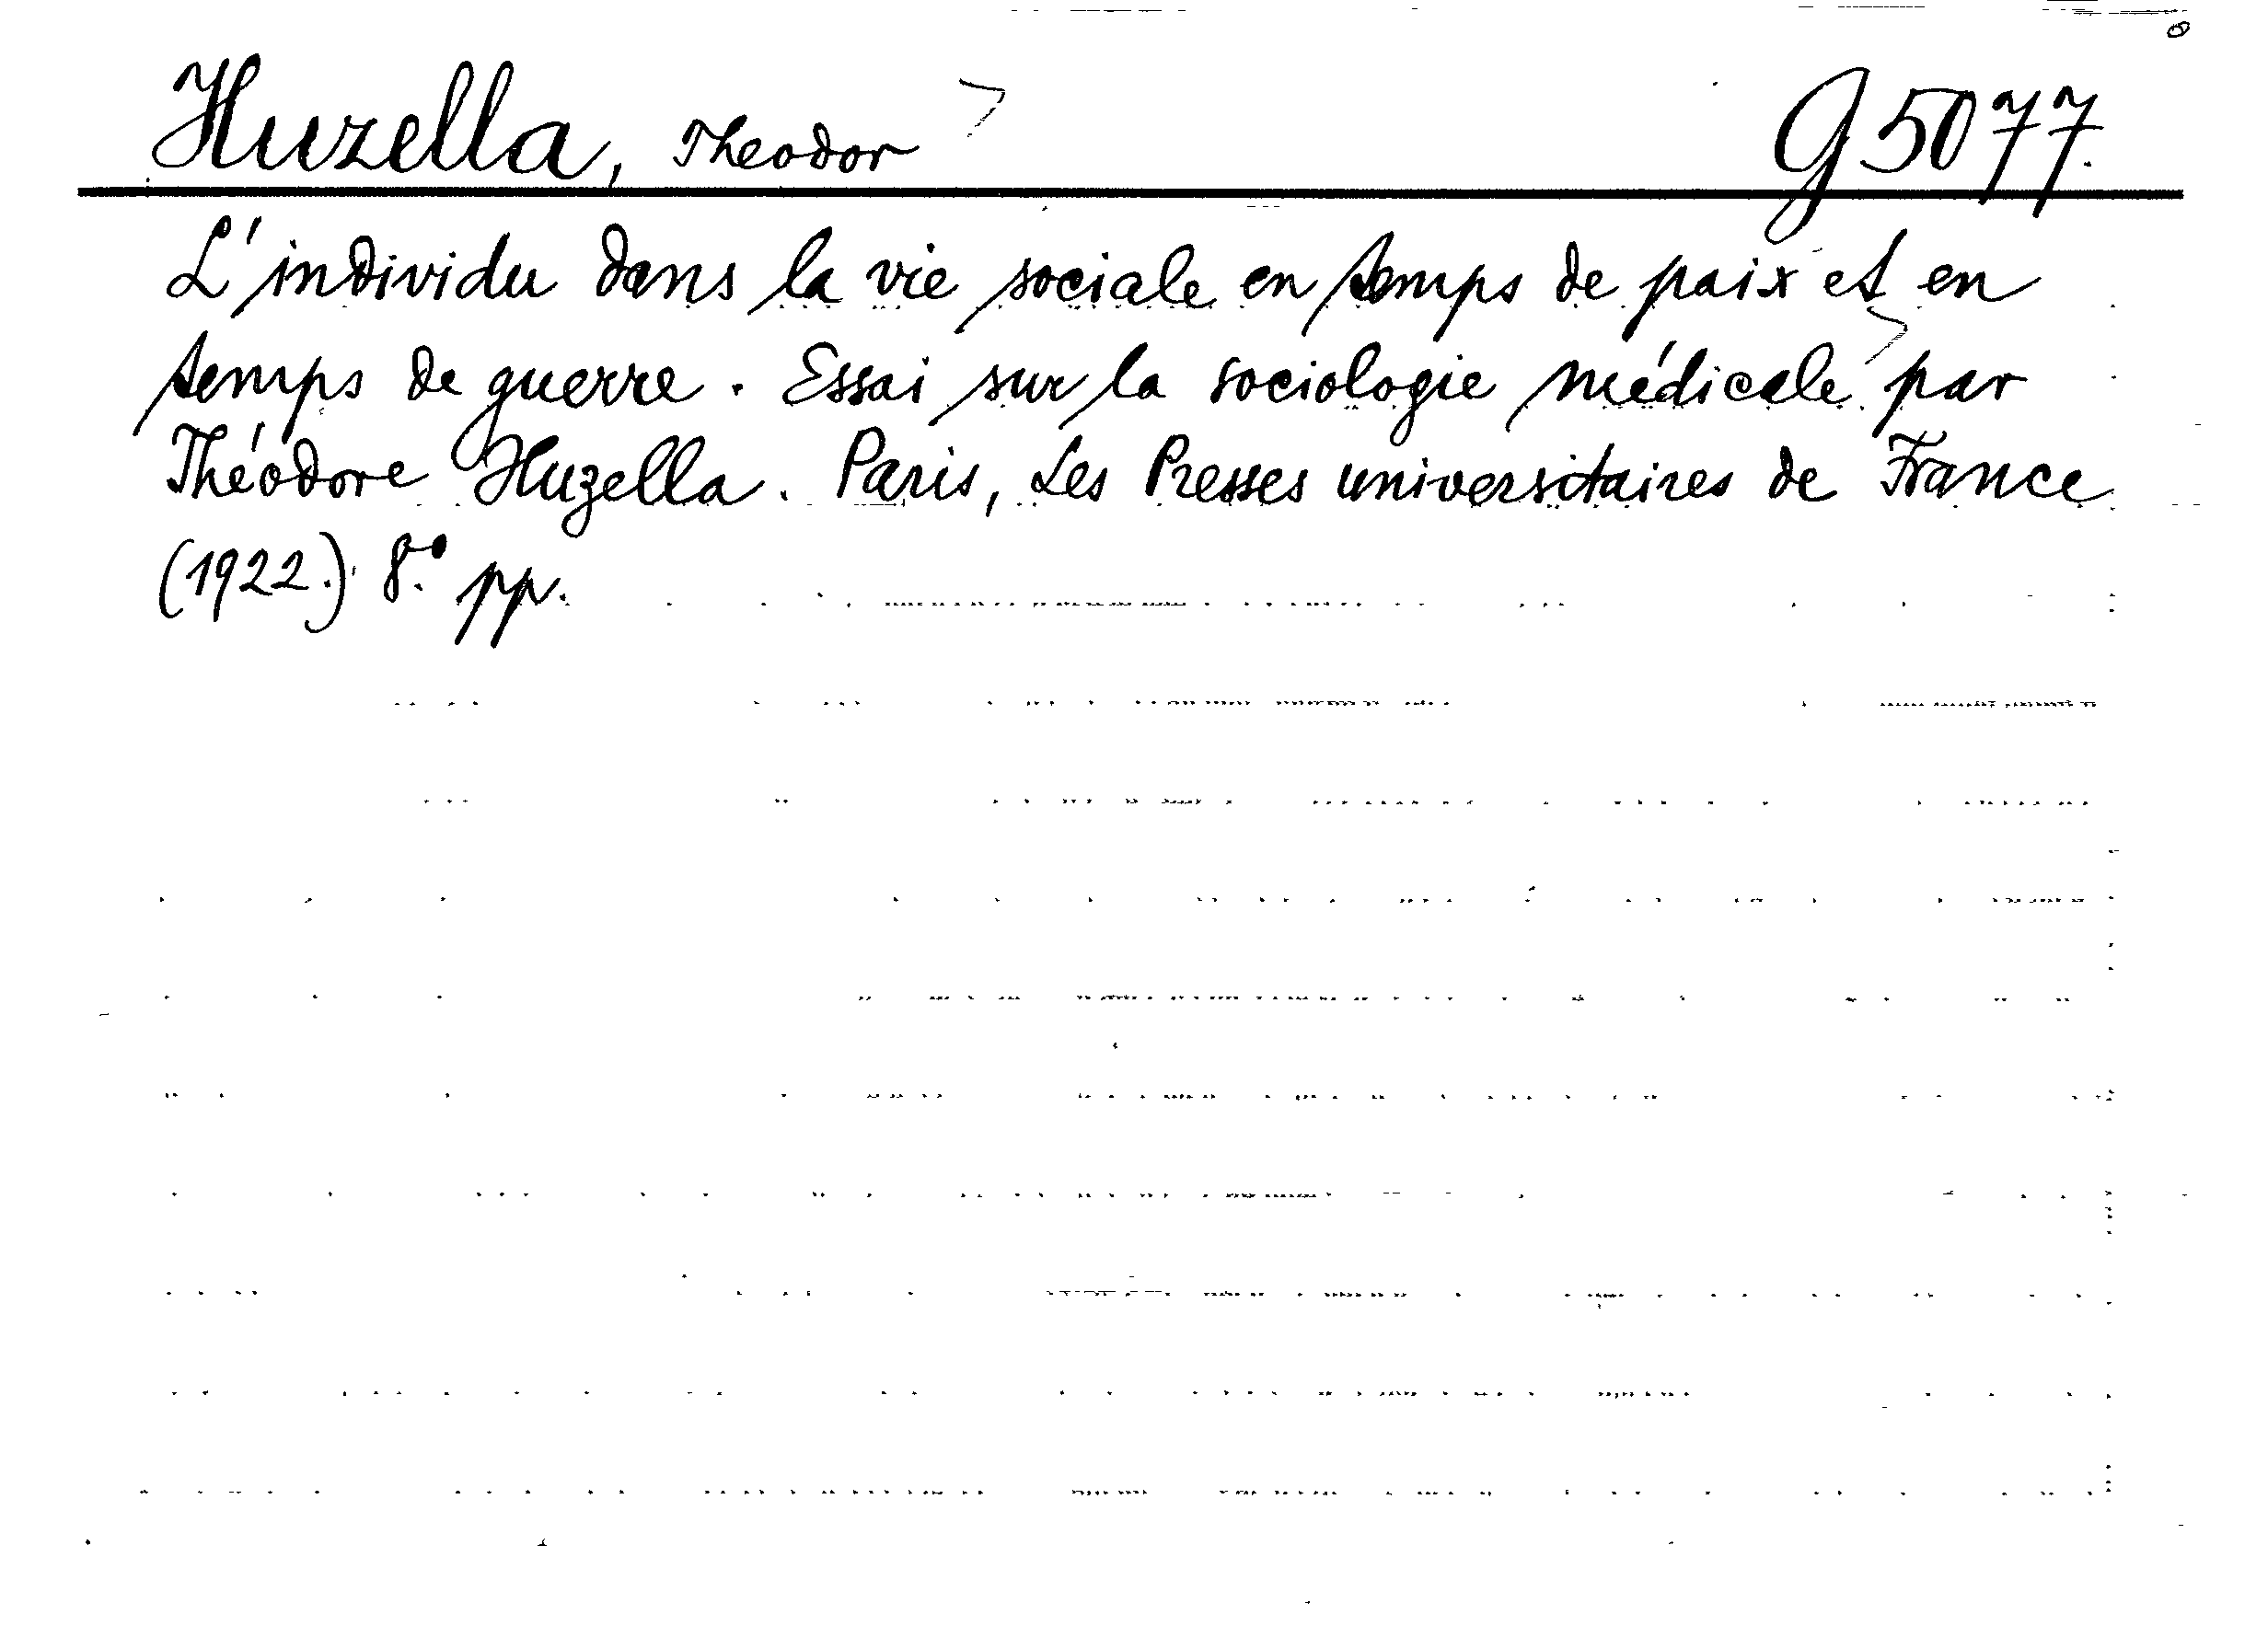 Huzella, Theodor G 5077.
L'individu dans la vie sociale en temps de paix et en
temps de guerre. Essai sur la sociologie médicale par
Théodore Huzella. Paris, Les Presses universitaires de France
(1922.) 8.° pp.